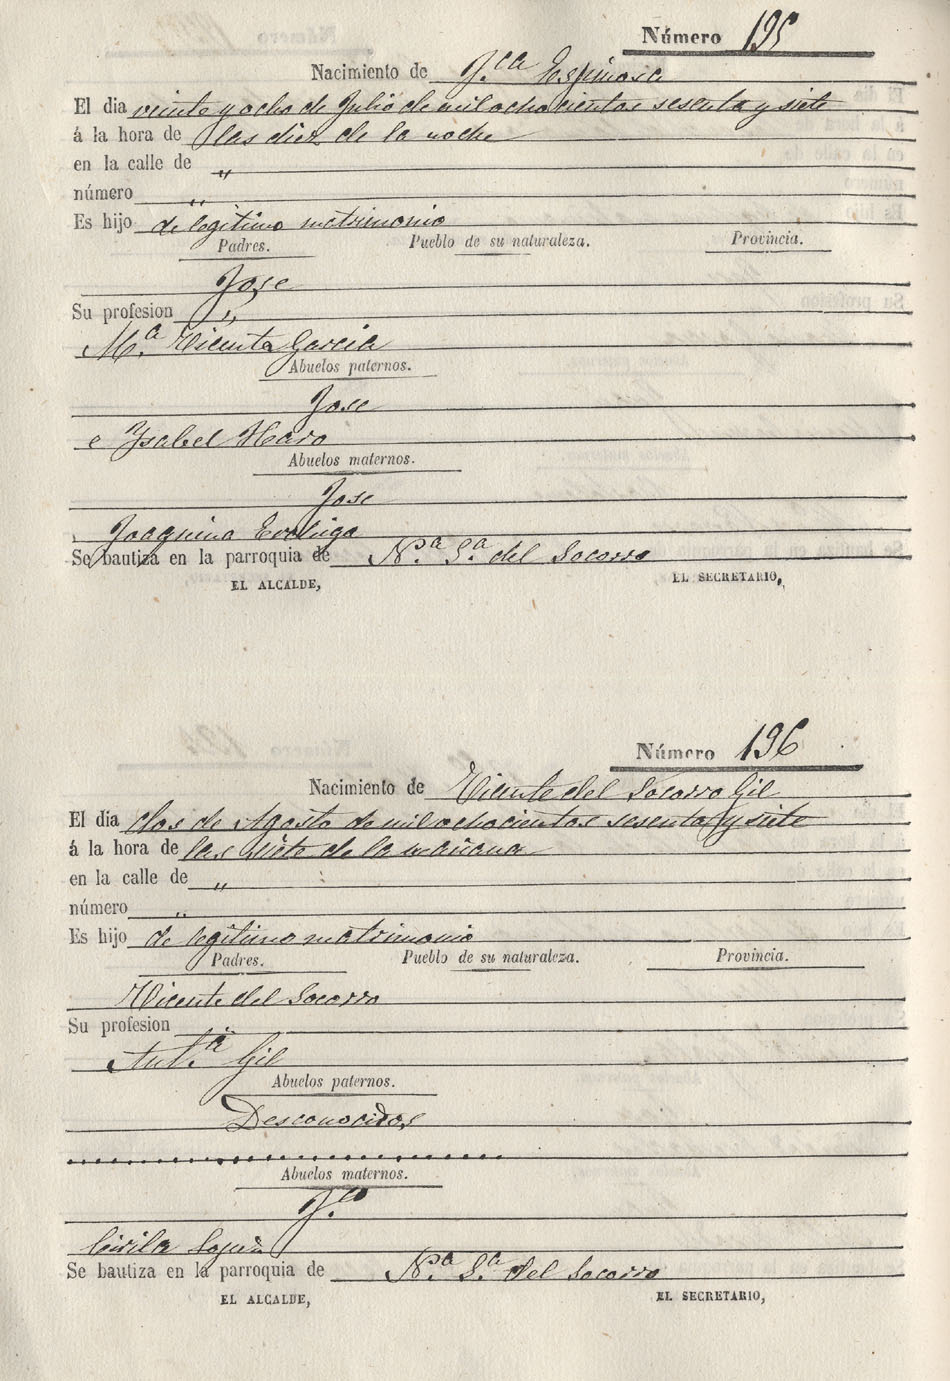 Número 195
Nacimiento de J.ca Espinosa
El dia veinte y ocho de Julio de mil ocho cientos sesenta y siete
á la hora de las diez de la noche
en la calle de „
número „
Es hijo de legitimo matrimonio
Padres. Pueblo de su naturaleza. Provincia.
Jose
Su profesion „
M.a Vicenta Garcia
Abuelos paternos.
Jose
e Ysabel Haro
Abuelos maternos.
Jose
Joaquina
Se bautiza en la parroquia de N.a S.a del Socorro
EL ALCALDE, EL SECRETARIO,
Número 196
Nacimiento de Vicente del Socorro Gil
El dia dos de Agosto de mil ochocientos sesenta y siete
á la hora de las siete de la mañana
en la calle de „
número „
Es hijo de legitimo matrimonio
Padres. Pueblo de su naturaleza. Provincia.
Vicente del Socorro
Su profesion
Ant.a Gil
Abuelos paternos.
Desconocidos
Abuelos maternos.
J.co
Se bautiza en la parroquia de N.a S.a del Socorro
EL ALCALDE, EL SECRETARIO,